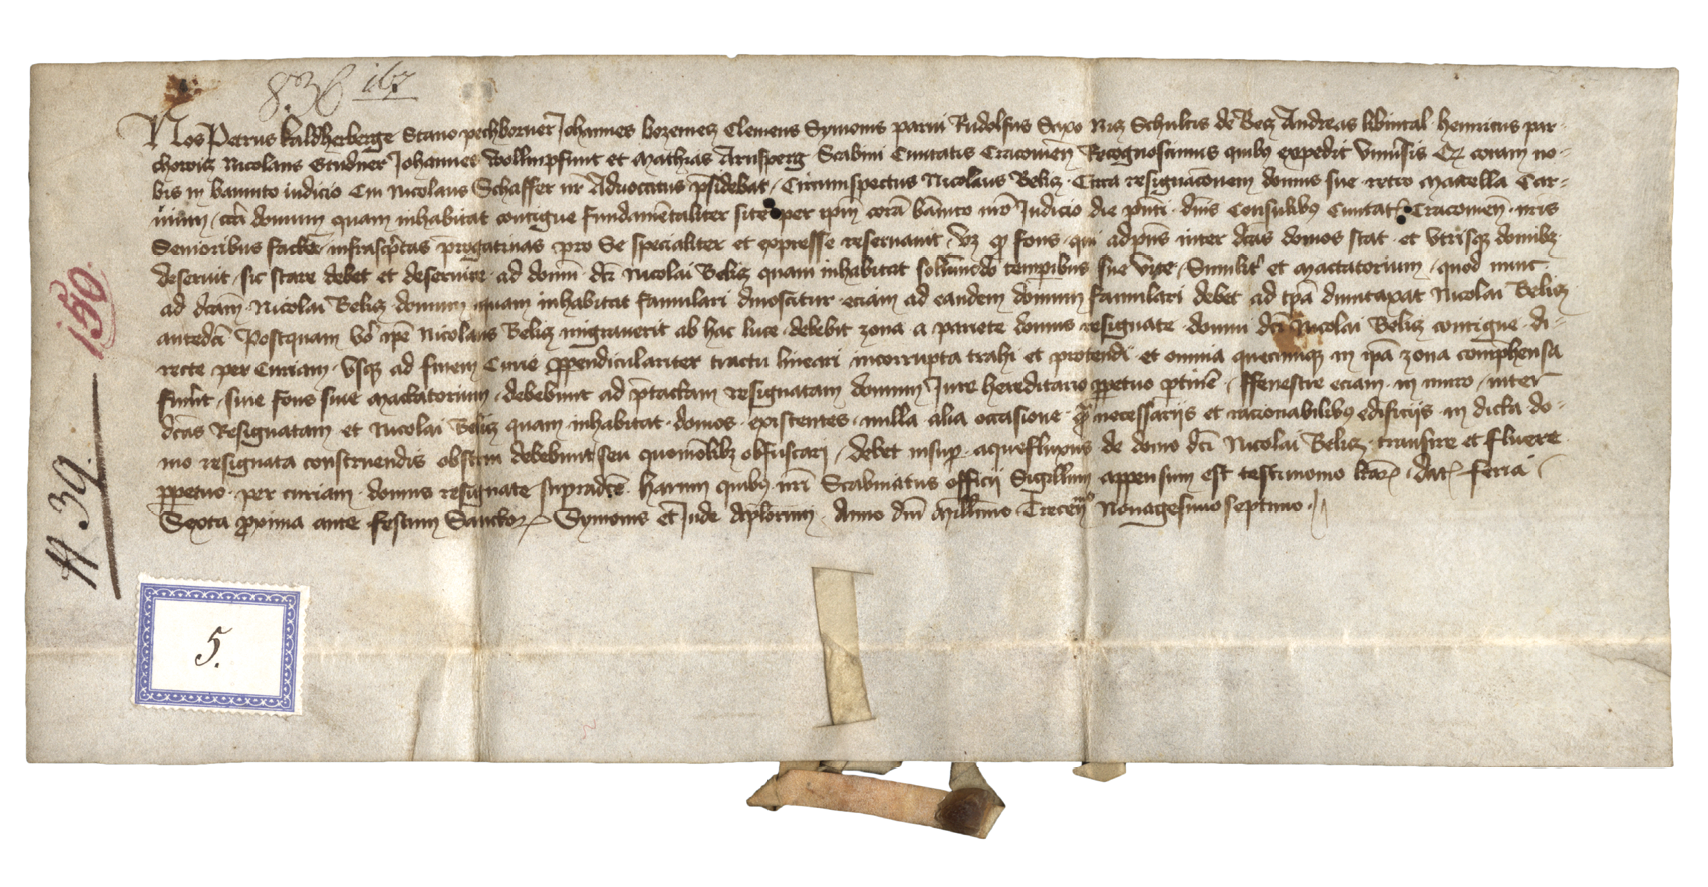 836 167
Nos Petrus kaldherberge Stano pechborner Johannes bozemecz Clemens Symonis parui Rudolfus Saxo Nicz Schultis de Becz Andreas libintal henricus par-
chowicz Nicolaus Grudner Johannes wollmpfunt et Mathias Arnsperg Scabini Ciuitatis Cracouien̄ Recognoscimus quibꝰ expedit vniu̓sis Qꝫ coram no-
bis in bannito iudicio Cui Nicolaus Schaffer nr̄ Aduocatus p̄sidebat / Circumspectus Nicolaus Belicz Circa resignac̄onem domus sue retro Macella Car-
niū circa domum quam inhabitat contigue fundame̅taliter site per ip̄m corā ba̅nito nr̄o Judicio die pn̄ti dn̄is Consulibꝰ Ciuitat̓ Cracouien̄ nr̄is
Senioribus facte infrasc̓ptas p̓rogatiuas pro Se specialiter et expresse reseruauit vꝫ qꝫ fons qui adpn̄s inter dc̄as domos stat et vtrisqꝫ domibꝫ
deseruit sic stare debet et deseruire ad domū dc̄i Nicolai Belicz quam inhabitat sollu̅modo tempibus sue vite / Similit̓ et Mactatorium / quod nunc
ad dc̄am Nicolai Belicz domum quam inhabitat famulari dinoscitur eciam ad eandem domum famulari debet ad tpā dumtaxat Nicolai Belicz
antedc̄i Postquam vo̓ ip̄e Nicolaus Belicz migrauerit ab hac luce debebit zona a pariete domus resignate domui dc̄i Nicolai Belicz contigue di-
recte per Curiam vsqꝫ ad finem Curie ꝑpendiculariter tractu lineari incorrupta trahi et protendi et omnia quecunqꝫ in ip̄a zona comp̓hensa
fuer̄it / siue fons siue mactatorium / debebunt ad p̄tactam resignatam domum Jure hereditario ꝑpetuo ꝑtinē̓ / ffenestre eciam in muro / inter
dc̄as Resignatam et Nicolai Belicz quam inhabitat domos existentes / nulla alia occasione p̄t̓ necessarijs et racionabilibꝰ edificijs in dicta do-
mo resignata construendis obstrui debebunt seu quomo̅libꝫ obfuscari / debet insuꝑ aquefluxus de domo dc̄i Nicolai Belicz transire et fluere
ꝑpetuo per curiam domus resignate supradc̄e harum quibꝰ nr̄i Scabinatus officij Sigillum appensum est testimonio lr̄arꝝ / dat̓ feria
Sexta ꝓxima ante festum Sanctorꝝ Symonis et Jude Ap̄lorum Anno dn̄i Millimo Trecen̅mo Nonagesimoseptimo
150.
N 39.
5.